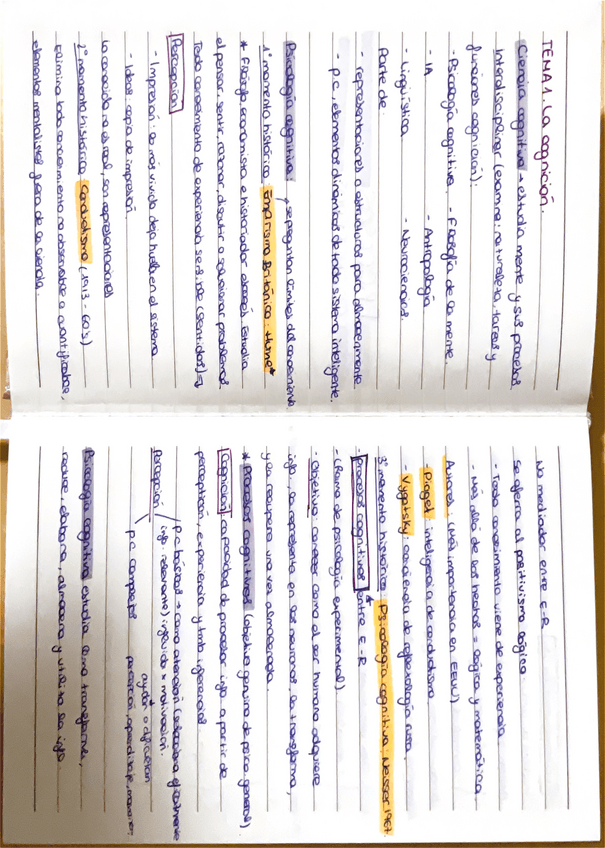 TEMA 1. La cognición.
Ciencia cognitiva → estudia mente y sus procesos.
Interdisciplinar (examina: naturaleza, tareas y
funciones cognición):
- Psicología cognitiva - Filosofía de la mente
- IA - Antropología
- Lingüística - Neurociencias.
Parte de:
- representaciones o estructuras para almacenamiento
- p.c. elementos dinámicos de todo sistema inteligente.
Psicología cognitiva: se preguntan límites del conocimiento
1º momento histórico: Empirismo Británico: Hume*
* Filósofo, economista e historiador escocés. Estudia
el pensar, sentir, razonar, discutir o solucionar problemas.
Todo conocimiento de experiencia sensible (sentidos)
Percepción
- Impresión: lo más vivido deja huella en el sistema
- Ideas: copia de impresión.
Lo conocido no es real, son representaciones
2º momento histórico: Conductismo (1913 - 60's)
Elimina todo conocimiento no observable o cuantificable,
elementos mentalistas fuera de la ciencia.
No mediador entre E-R
Se aferra al positivismo lógico:
- Todo conocimiento viene de experiencia
- Más allá de los hechos = lógica y matemática.
Autores: (+ importancia en EEUU)
Piaget: inteligencia de conductismo
- Vygotsky: conciencia de reflexología rusa.
3º momento histórico: Psicología cognitiva: Neisser 1967
- Procesos cognitivos* entre E-R
- (Rama de psicología experimental)
- Objetivo: conocer como el ser humano adquiere
info, la representa en las neuronas, la transforma,
y la recupera una vez almacenada.
* Procesos cognitivos (objetivo genuino de psico general)
Cognición: capacidad de procesar info a partir de
percepción, experiencia y inferencias
Percepción p.c básicos → como atención (selecciona
info. relevante) influido x motivación.
ayudar o dificultar
p.c complejos
Psicología cognitiva estudia como transforma,
reduce, elabora, almacena y utiliza la info